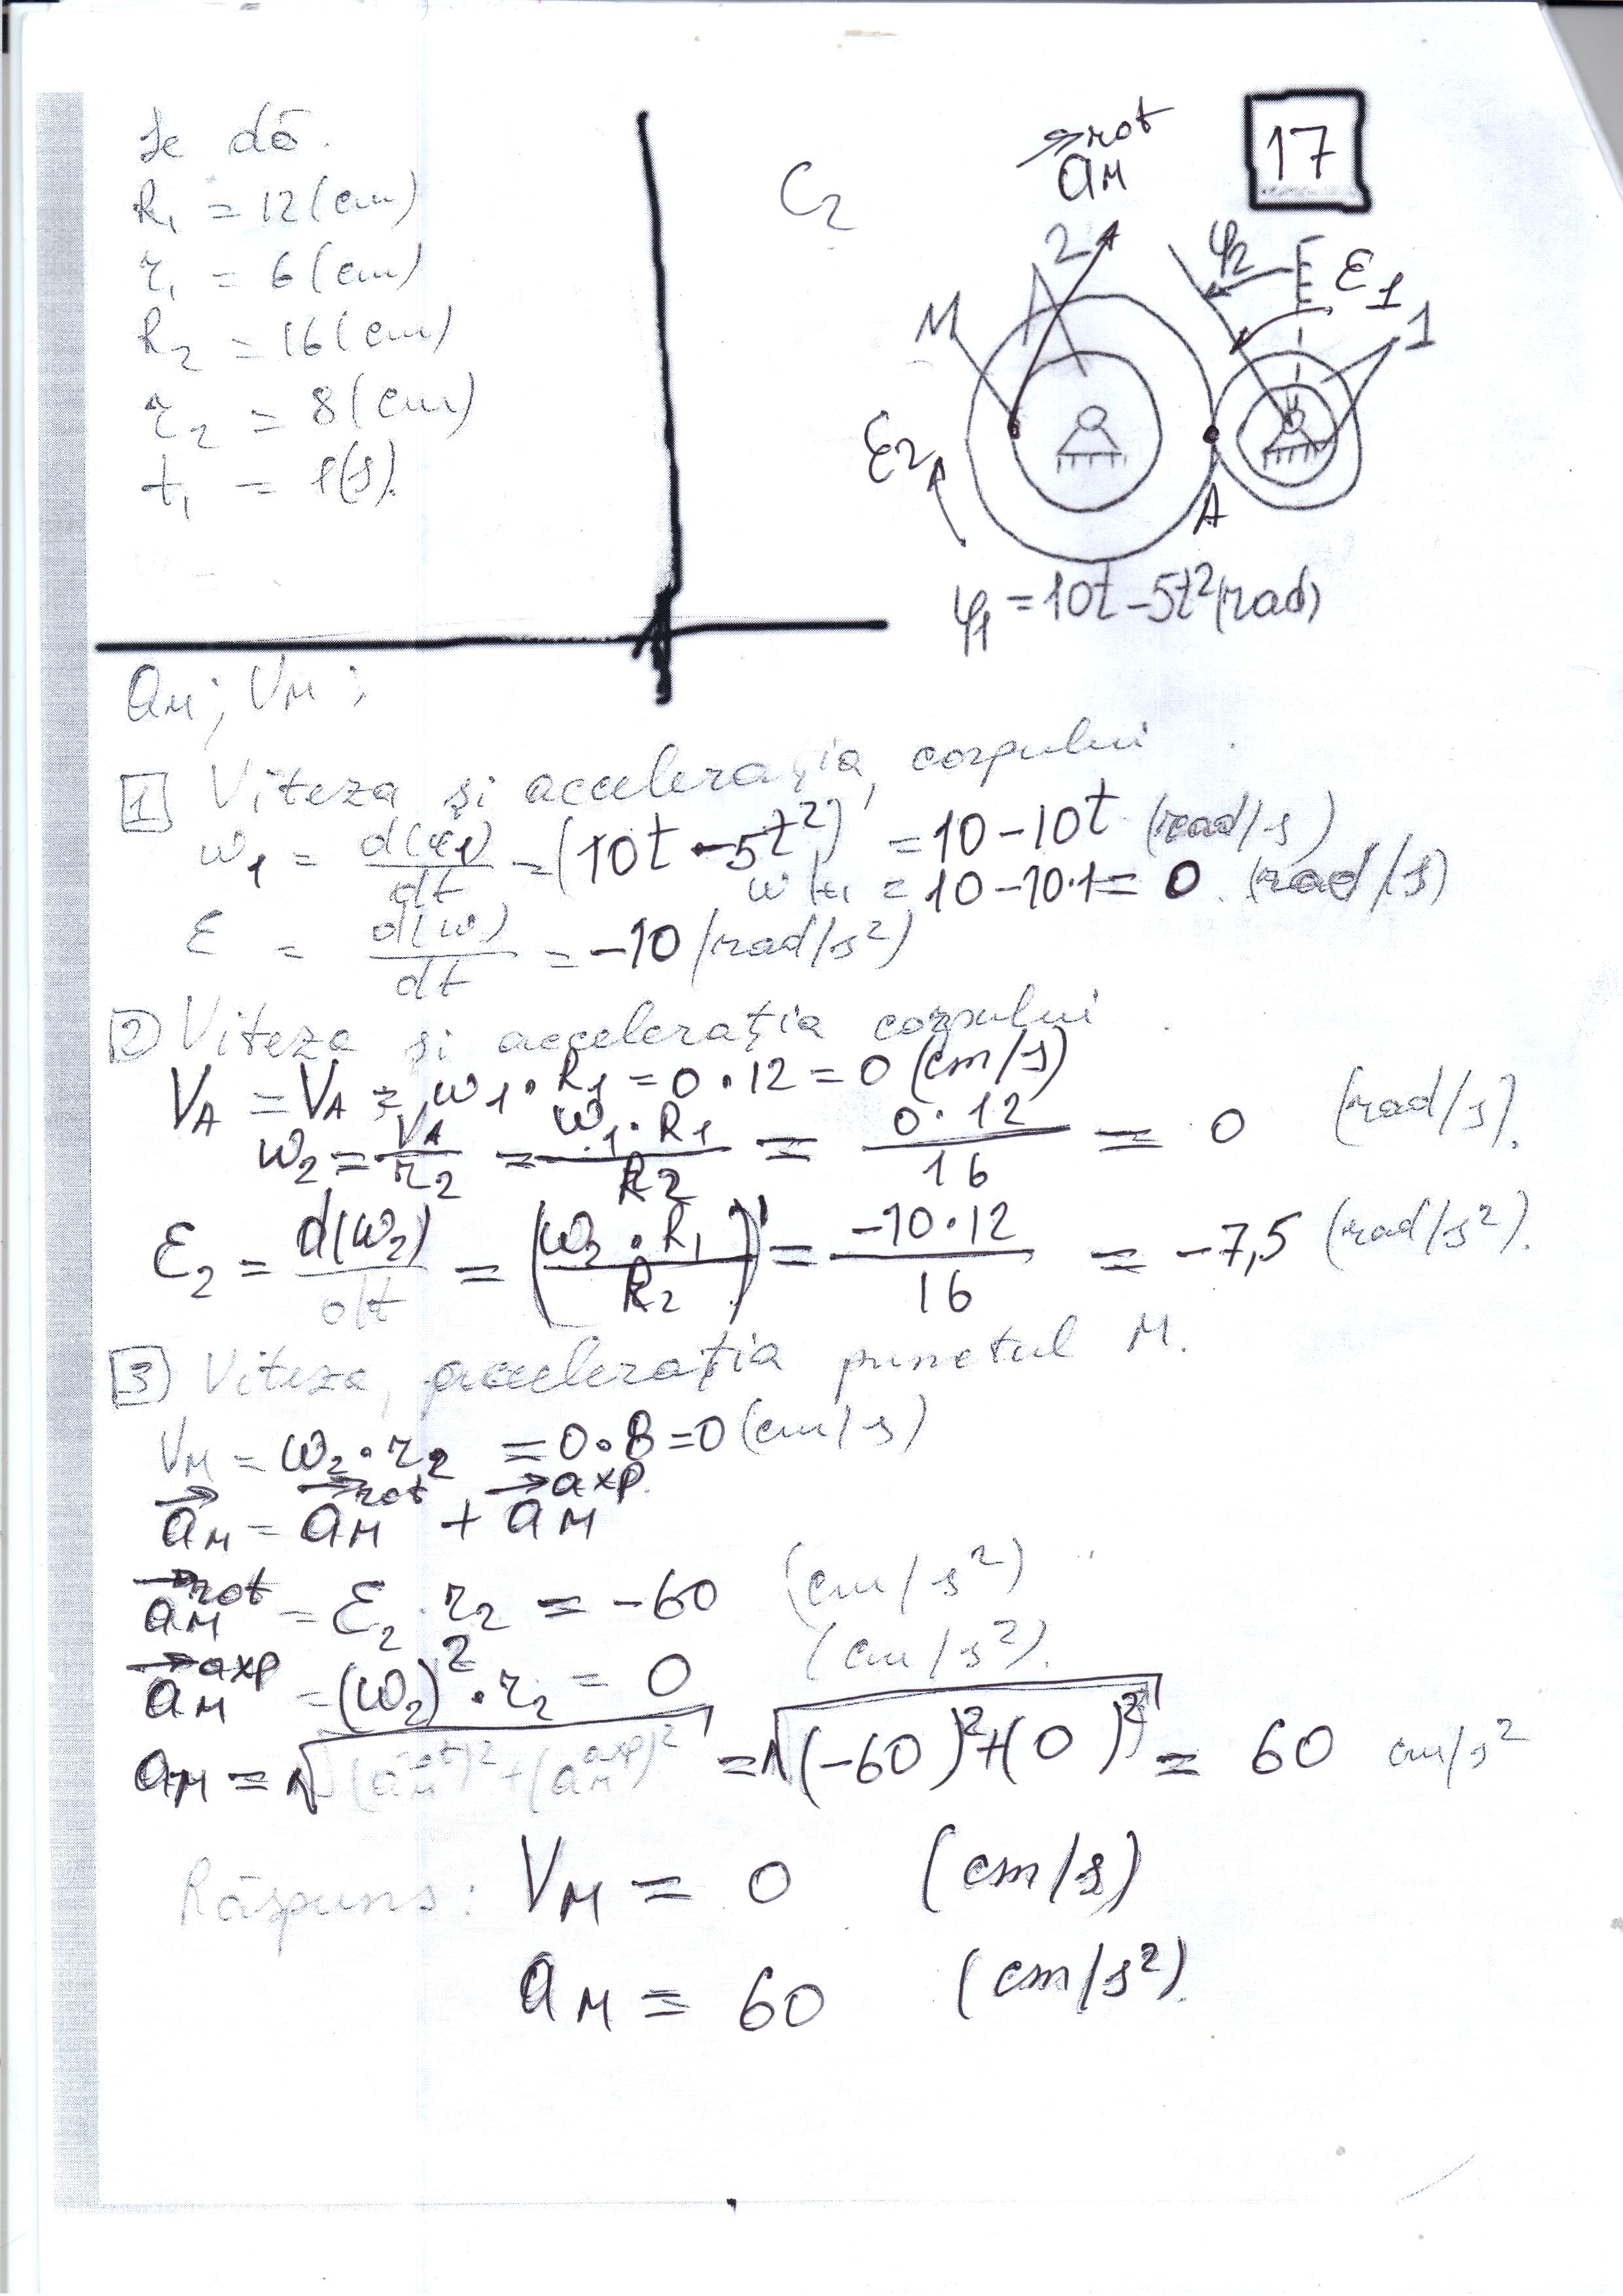 Se dă.
R₁ = 12 (cm)
r₁ = 6 (cm)
R₂ = 16 (cm)
r₂ = 8 (cm)
t₁ = 1(s).
C₂
a⃗ᴍ rot
17
2
φ₂
ε₁
M
1
ε₂
A
φ₁ = 10t – 5t² (rad)
aᴍ; Vᴍ;
1 Viteza și accelerația corpului
ω₁ = d(φ₁)/dt = (10t – 5t²)' = 10 – 10t (rad/s)
ω|t₁ = 10 – 10·1 = 0 (rad/s)
ε = d(ω)/dt = –10 (rad/s²)
2 Viteza și accelerația corpului
V_A = V_A = ω₁·R₁ = 0·12 = 0 (cm/s)
ω₂ = V_A/r₂ = ω₁·R₁/R₂ = 0·12/16 = 0 (rad/s).
ε₂ = d(ω₂)/dt = (ω₂·R₁/R₂)' = –10·12/16 = –7,5 (rad/s²).
3 Viteza, accelerația punctul M.
Vᴍ = ω₂·r₂ = 0·8 = 0 (cm/s)
a⃗ᴍ = a⃗ᴍ rot + a⃗ᴍ axp.
a⃗ᴍ rot = ε₂·r₂ = –60 (cm/s²)
a⃗ᴍ axp = (ω₂)²·r₂ = 0 (cm/s²).
aᴍ = √((aᴍ rot)² + (aᴍ axp)²) = √((–60)²+(0)²) = 60 cm/s²
Răspuns: Vᴍ = 0 (cm/s)
aᴍ = 60 (cm/s²).